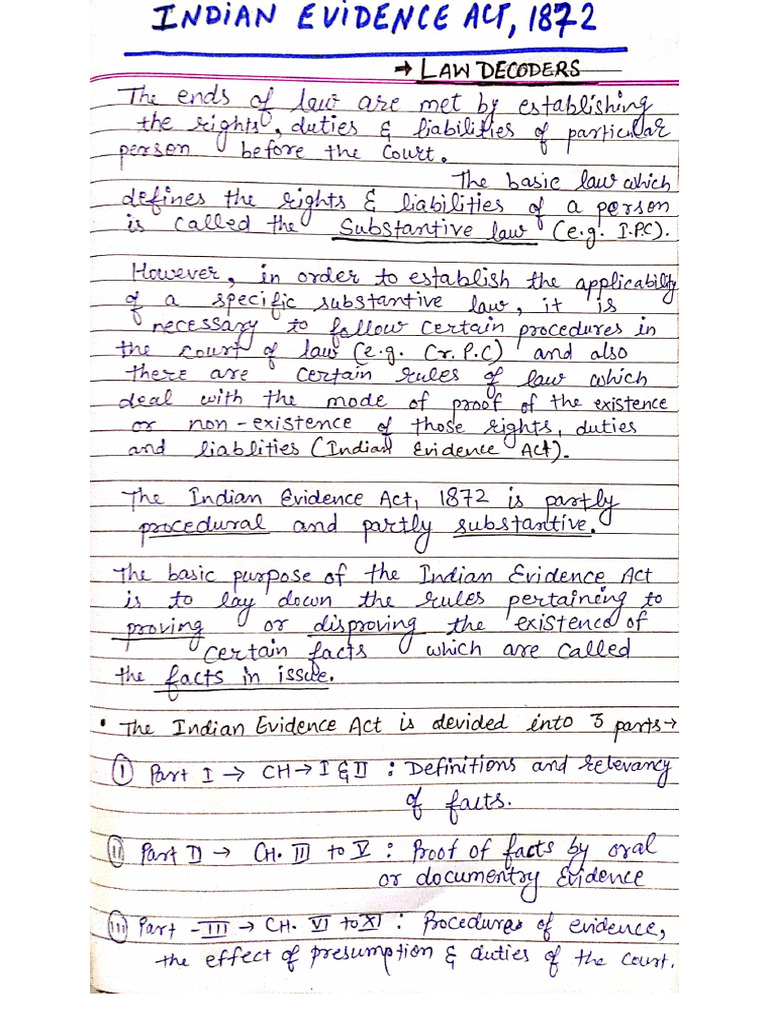 INDIAN EVIDENCE ACT, 1872
→ LAW DECODERS
The ends of law are met by establishing
the rights, duties & liabilities of particular
person before the Court.
The basic law which
defines the rights & liabilities of a person
is called the Substantive law (e.g. I.P.C).
However, in order to establish the applicability
of a specific substantive law, it is
necessary to follow certain procedures in
the court of law (e.g. Cr.P.C) and also
there are certain rules of law which
deal with the mode of proof of the existence
or non-existence of those rights, duties
and liablities (Indian Evidence Act).
The Indian Evidence Act, 1872 is partly
procedural and partly substantive.
The basic purpose of the Indian Evidence Act
is to lay down the rules pertaining to
proving or disproving the existence of
certain facts which are called
the facts in issue.
• The Indian Evidence Act is devided into 3 parts →
(I) Part I → CH → I & II : Definitions and relevancy
of facts.
(II) Part II → CH. III to V : Proof of facts by oral
or documentry Evidence
(III) Part - III → CH. VI to XI : Procedures of evidence,
the effect of presumption & duties of the court.